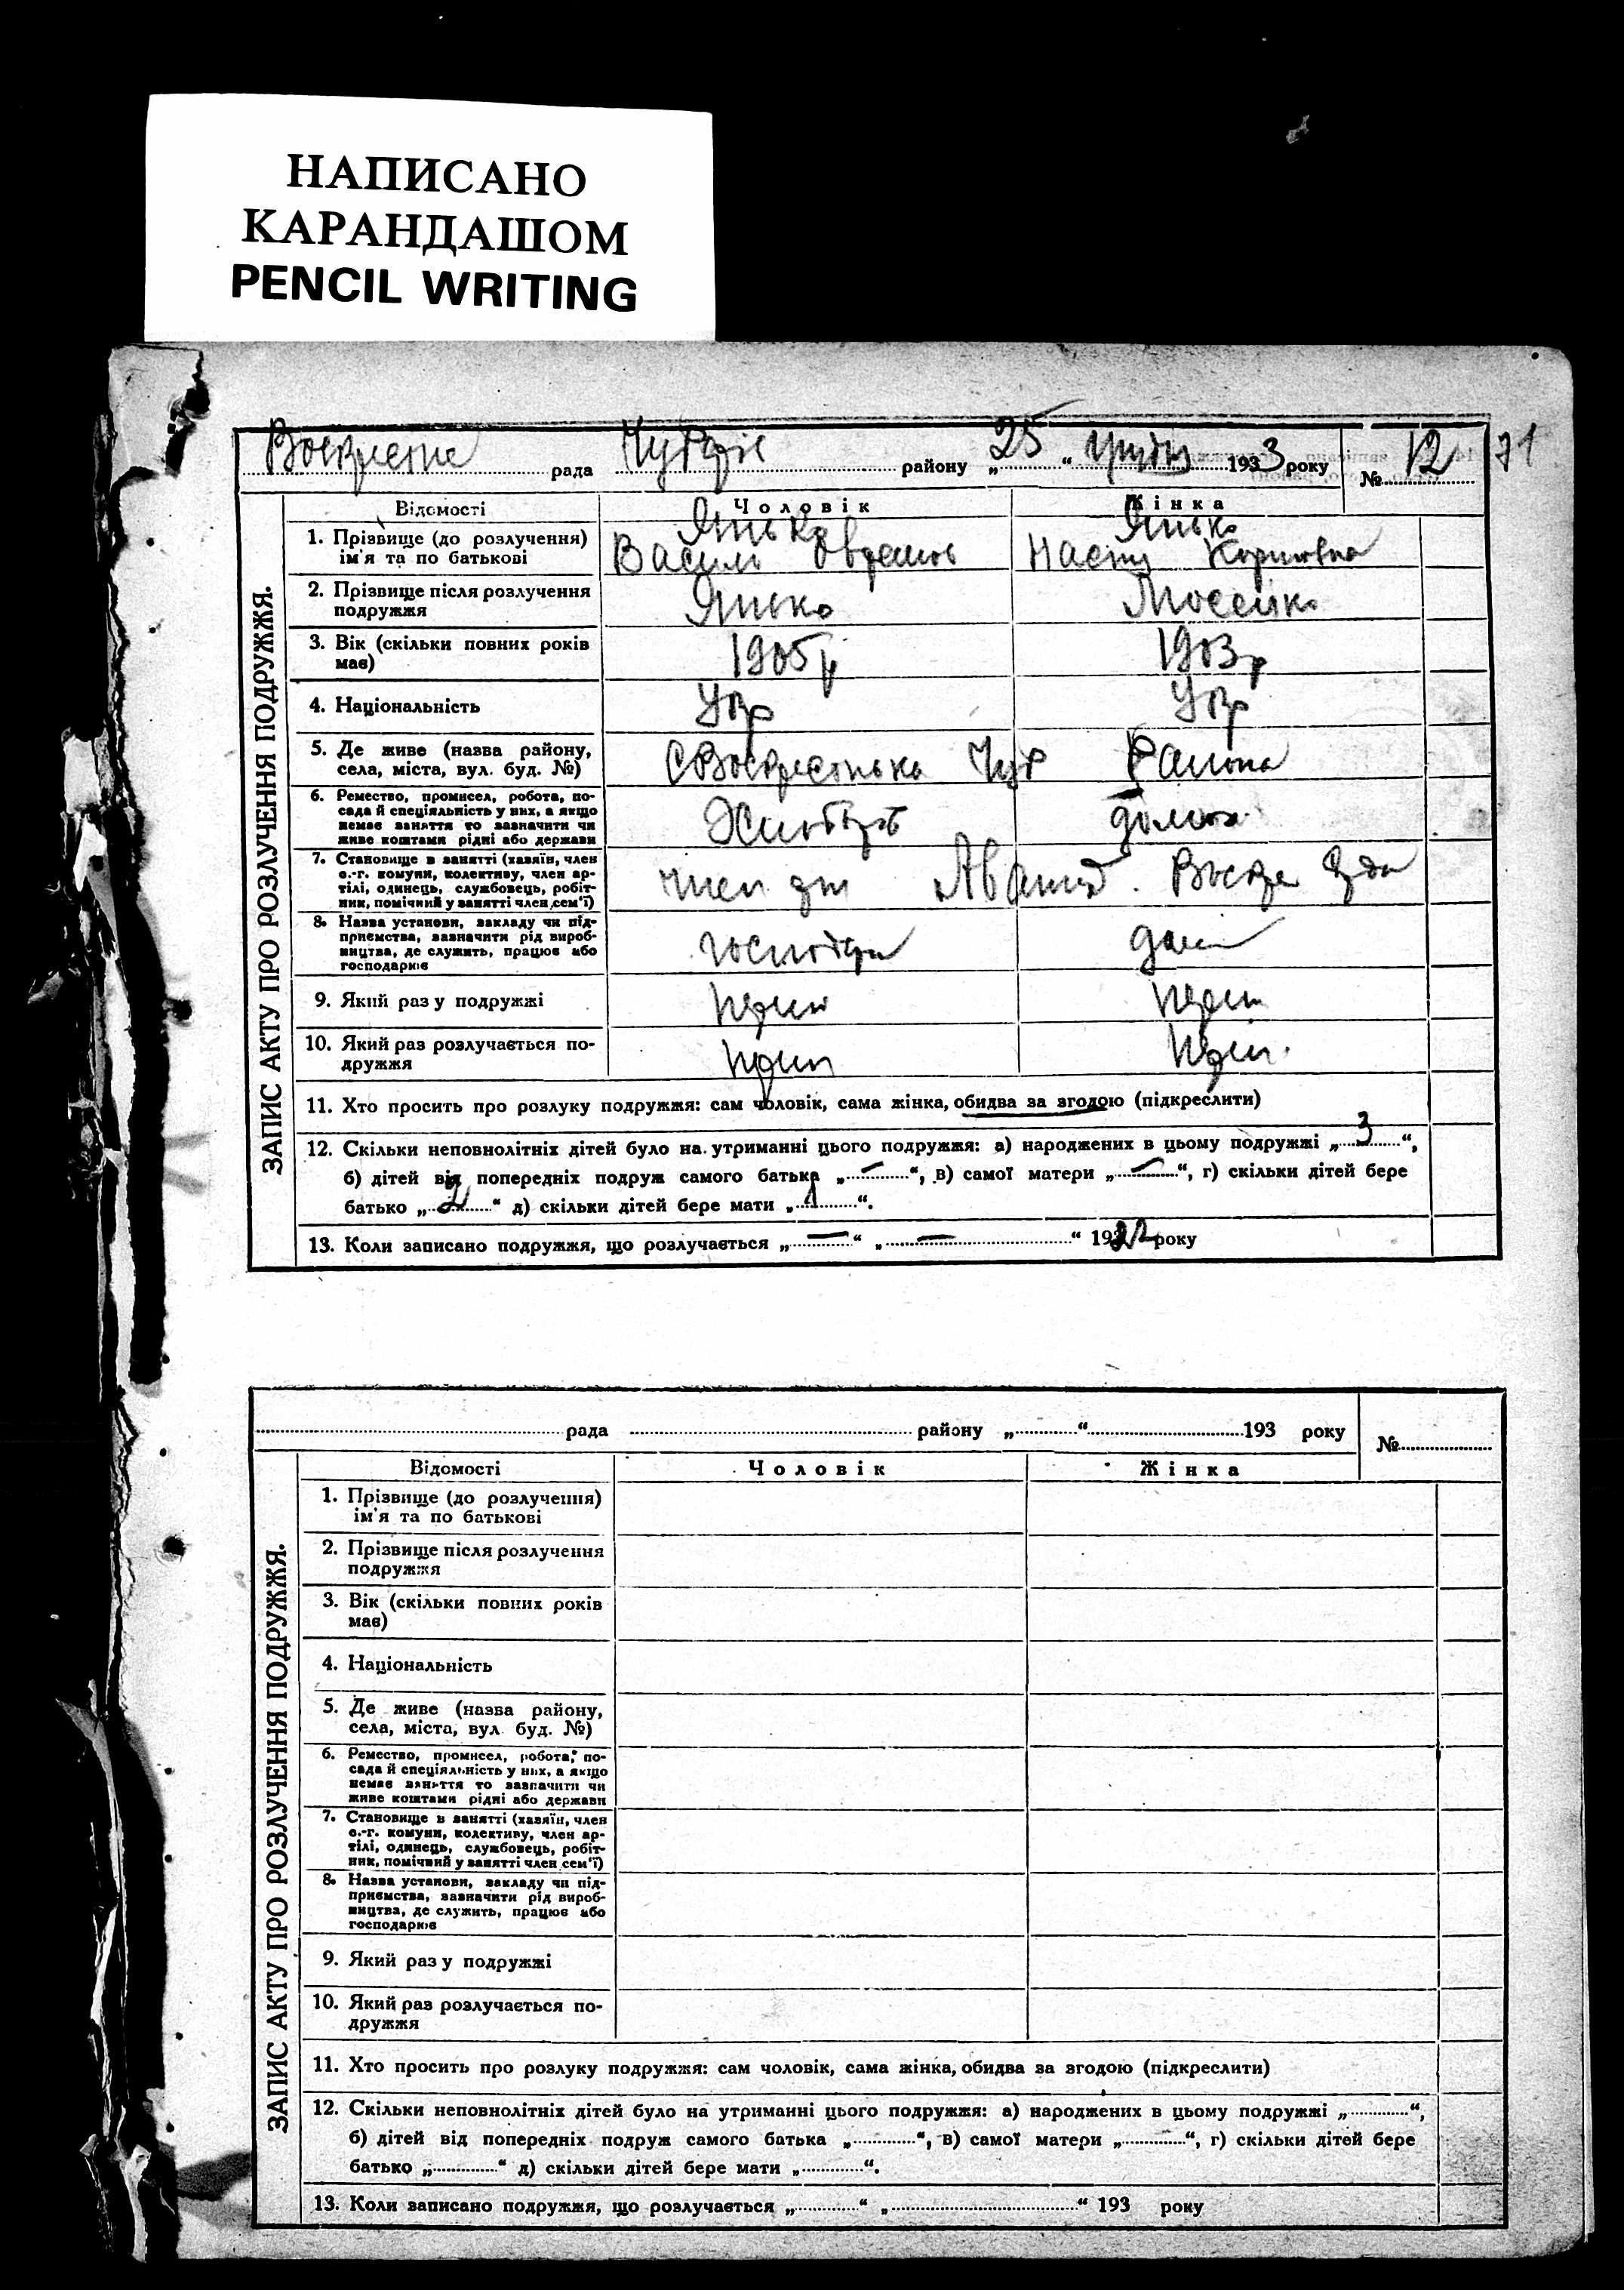 НАПИСАНО
КАРАНДАШОМ
PENCIL WRITING
рада району „25“ 1933 року № 12 71
ЗАПИС АКТУ ПРО РОЗЛУЧЕННЯ ПОДРУЖЖЯ.
Відомості Чоловік Жінка
1. Прізвище (до розлучення) Янько Янько
ім'я та по батькові Василь Настя
2. Прізвище після розлучення
подружжя Янько
3. Вік (скільки повних років 1905 р 1903 р
має)
4. Національність Укр Укр
5. Де живе (назва району,
села, міста, вул. буд. №) Района
6. Ремество, промисел, робота, по-
сада й спеціяльність у них, а якщо
немає заняття то зазначити чи Хлібороб
живе коштами рідні або держави
7. Становище в занятті (хазяїн, член
с.-г. комуни, колективу, член ар-
тілі, одинець, службовець, робіт-
ник, помічний у занятті член сем'ї)
8. Назва установи, закладу чи під-
приємства, зазначити рід вироб-
ництва, де служить, працює або
господарює
9. Який раз у подружжі
10. Який раз розлучається по-
дружжя
11. Хто просить про розлуку подружжя: сам чоловік, сама жінка, обидва за згодою (підкреслити)
12. Скільки неповнолітніх дітей було на утриманні цього подружжя: а) народжених в цьому подружжі „3“,
б) дітей від попередніх подруж самого батька „—“, в) самої матери „—“, г) скільки дітей бере
батько „2“ д) скільки дітей бере мати „1“.
13. Коли записано подружжя, що розлучається „—“ „—“ 1922 року
рада району „“ 193 року №
ЗАПИС АКТУ ПРО РОЗЛУЧЕННЯ ПОДРУЖЖЯ.
Відомості Чоловік Жінка
1. Прізвище (до розлучення)
ім'я та по батькові
2. Прізвище після розлучення
подружжя
3. Вік (скільки повних років
має)
4. Національність
5. Де живе (назва району,
села, міста, вул. буд. №)
6. Ремество, промисел, робота, по-
сада й спеціяльність у них, а якщо
немає заняття то зазначити чи
живе коштами рідні або держави
7. Становище в занятті (хазяїн, член
с.-г. комуни, колективу, член ар-
тілі, одинець, службовець, робіт-
ник, помічний у занятті член сем'ї)
8. Назва установи, закладу чи під-
приємства, зазначити рід вироб-
ництва, де служить, працює або
господарює
9. Який раз у подружжі
10. Який раз розлучається по-
дружжя
11. Хто просить про розлуку подружжя: сам чоловік, сама жінка, обидва за згодою (підкреслити)
12. Скільки неповнолітніх дітей було на утриманні цього подружжя: а) народжених в цьому подружжі „“,
б) дітей від попередніх подруж самого батька „“, в) самої матери „“, г) скільки дітей бере
батько „“ д) скільки дітей бере мати „“.
13. Коли записано подружжя, що розлучається „“ „“ 193 року